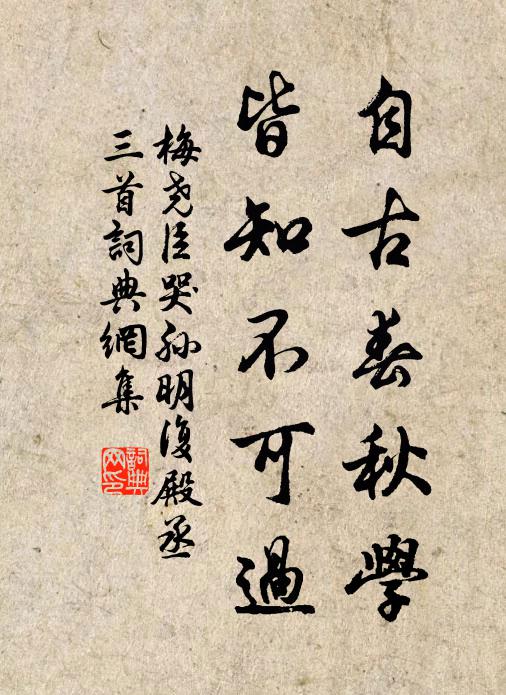 自古春秋學
皆知不可過
梅堯臣哭孫明復殿丞
三首詞典網集
詞典網印